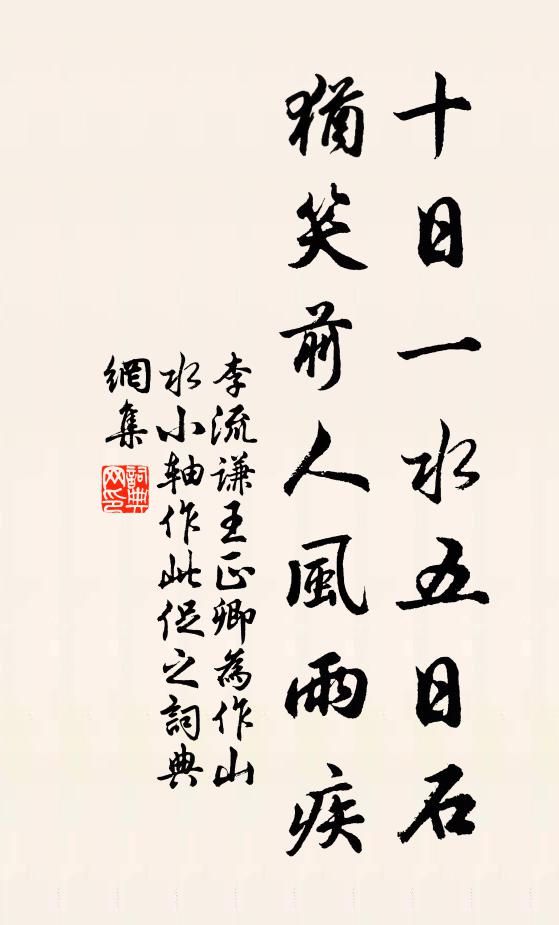 十日一水五日石
猶笑前人風雨疾
李流謙王正卿為作山
水小轴作此促之詞典
網集
詞典
网印